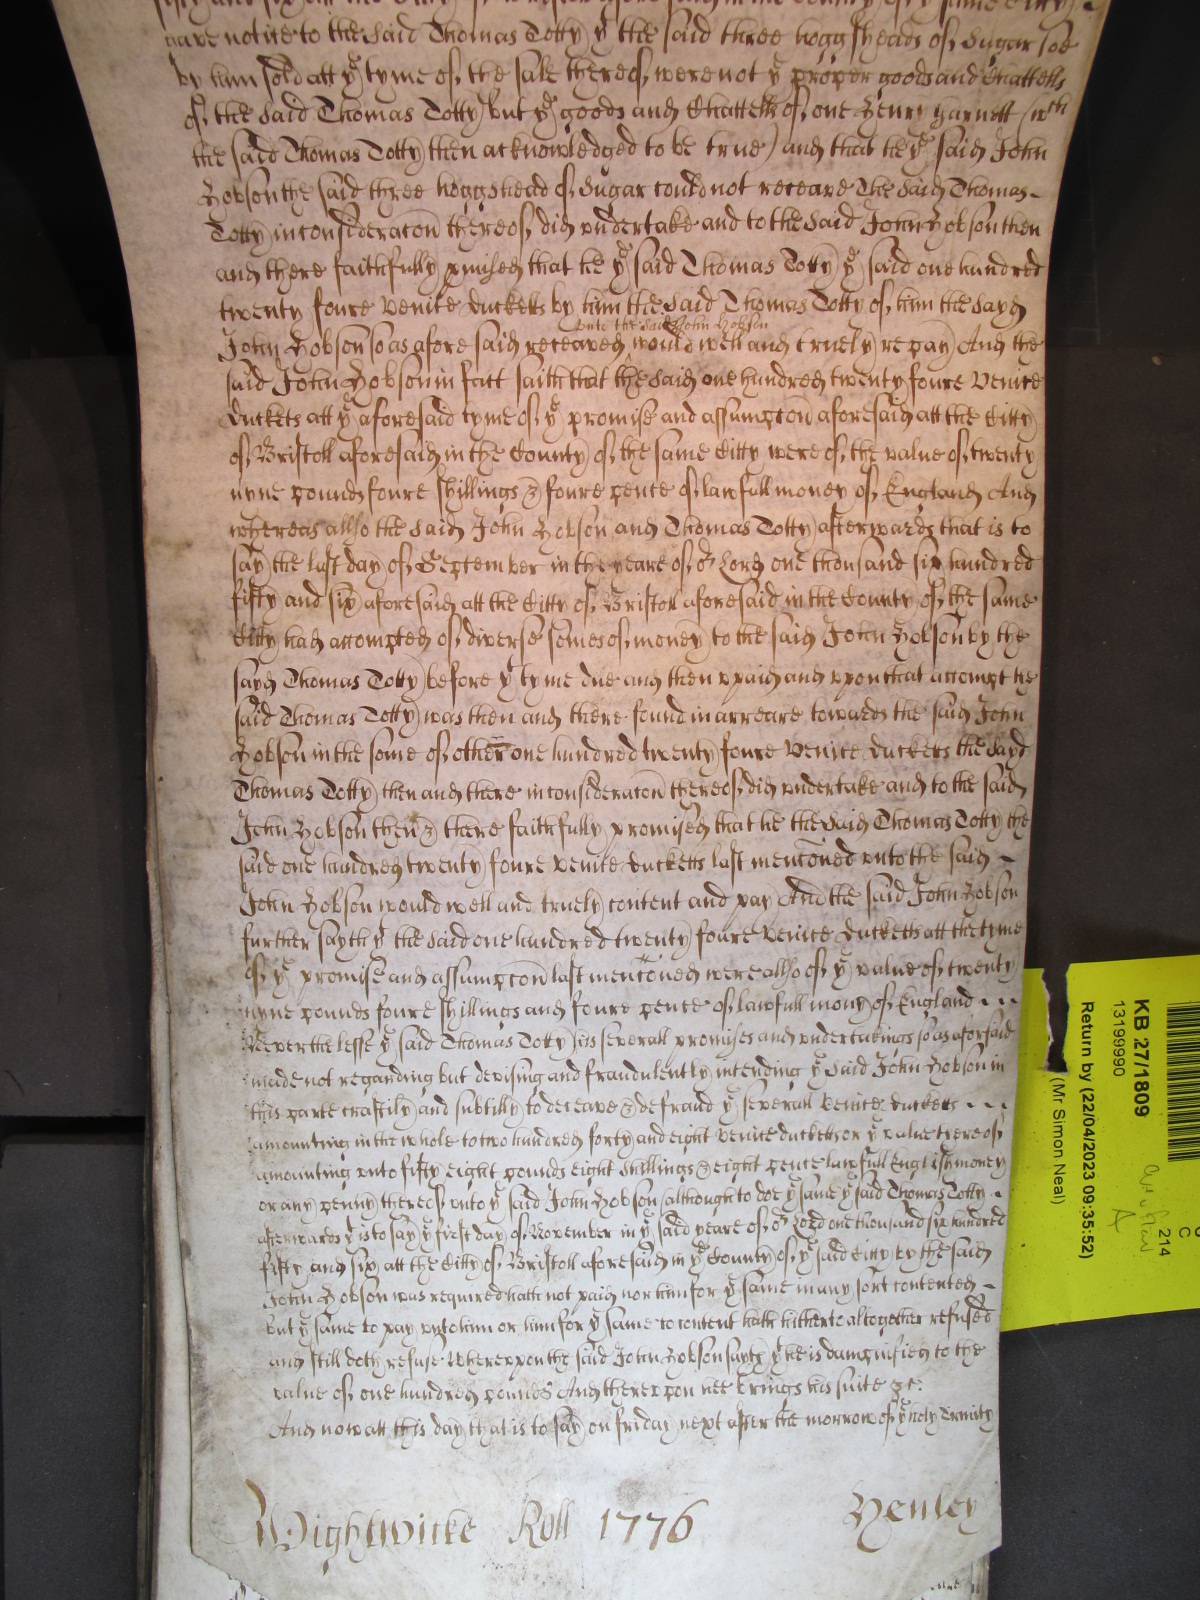 fifty and six att the Citty of Bristoll afore said in the County of ye same Citty
gave notice to the said Thomas Totty yt the said three hoggsheads of Sugar soe
by him sold att ye tyme of the sale thereof were not ye proper goods and Chattells
of the said Thomas Totty but ye goods and Chattells of one Henry Garnett (wch
the said Thomas Totty then acknowledged to be true) and that he ye said John
Hobson the said three hoggshead of Sugar could not receave The said Thomas
Totty in consideracon thereof did undertake and to the said John Hobson then
and there faithfully pmised that he ye said Thomas Totty ye said one hundred
twenty foure Venice Ducketts by him the said Thomas Totty of him the sayd
unto the said John Hobson
John Hobson so as afore said receaved would well and truely repay And the
said John Hobson in fact saith that the said one hundred twenty foure Venice
Duckets att ye aforesaid tyme of ye promise and assumpcon aforesaid att the Citty
of Bristoll aforesaid in the County of the same Citty were of the value of twenty
nyne pounds foure shillings & foure pence of lawfull money of England And
whereas allso the said John Hobson and Thomas Totty afterwards that is to
say the last day of September in the yeare of or Lord one thousand six hundred
fifty and six aforesaid att the Citty of Bristoll aforesaid in the County of the same
Citty had accompted of diverse somes of money to the said John Hobson by the
sayd Thomas Totty before yt tyme due and then upaid and upon that accompt the
said Thomas Totty was then and there found in arreare towards the said John
Hobson in the some of other one hundred twenty foure Venice Duckets the sayd
Thomas Totty then and there in consideracon thereof did undertake and to the said
John Hobson then & there faithfully promised that he the said Thomas Totty the
said one hundred twenty foure Venice Ducketts last menconed unto the said
John Hobson would well and truely content and pay And the said John Hobson
further sayth yt the said one hundred twenty foure Venice Ducketts att the tyme
of ye promise and assumpcon last menconed were allso of ye value of twenty
nyne pounds foure shillings and foure pence of lawfull mony of England
Neverthelesse ye said Thomas Totty his severall promises and undertakings so as aforsaid
made not regarding but devising and fraudulently intending ye said John Hobson in
this parte craftily and subtilly to deceave & defraud ye severall Venice Ducketts
amounting in the whole to two hundred forty and eight Venice ducketts or ye value thereof
amounting unto fifty eight pounds eight shillings & eight pence lawfull English money
or any penny thereof unto ye said John Hobson (although to doe ye same ye said Thomas Totty
afterwards yt is to say ye first day of November in ye said yeare of or Lord one thousand six hundred
fifty and six att the Citty of Bristoll aforesaid in ye County of ye said Citty by the said
John Hobson was required hath not paid nor him for ye same in any sort contented
but ye same to pay unto him or him for ye same to content hath hitherto altogether refused
and still doth refuse Whereupon the said John Hobson sayth yt he is dampnified to the
value of one hundred pounds And thereupon hee brings his suite &c:
And now att this day that is to say on friday next after the morrow of ye holy Trinity
Wightwicke Roll 1776 Henley
KB 27/1809
13199990
Return by (22/04/2023 09:35:52)
(Mr Simon Neal)
C
214